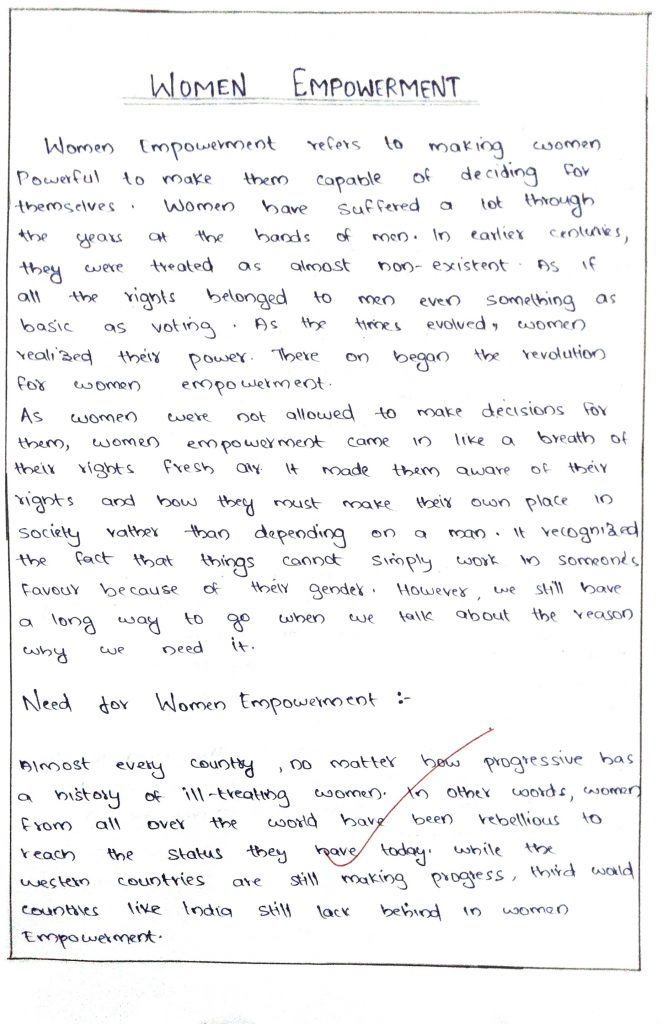 WOMEN EMPOWERMENT
Women Empowerment refers to making women
Powerful to make them capable of deciding for
themselves. Women have suffered a lot through
the years at the hands of men. In earlier centuries,
they were treated as almost non-existent. As if
all the rights belonged to men even something as
basic as voting. As the times evolved, women
realized their power. There on began the revolution
for women empowerment.
As women were not allowed to make decisions for
them, women empowerment came in like a breath of
their rights fresh air. It made them aware of their
rights and how they must make their own place in
society rather than depending on a man. It recognized
the fact that things cannot simply work in someone's
favour because of their gender. However, we still have
a long way to go when we talk about the reason
why we need it.
Need for Women Empowerment :-
Almost every country, no matter how progressive has
a history of ill-treating women. In other words, women
from all over the world have been rebellious to
reach the status they have today. While the
western countries are still making progress, third world
countries like India still lack behind in women
Empowerment.